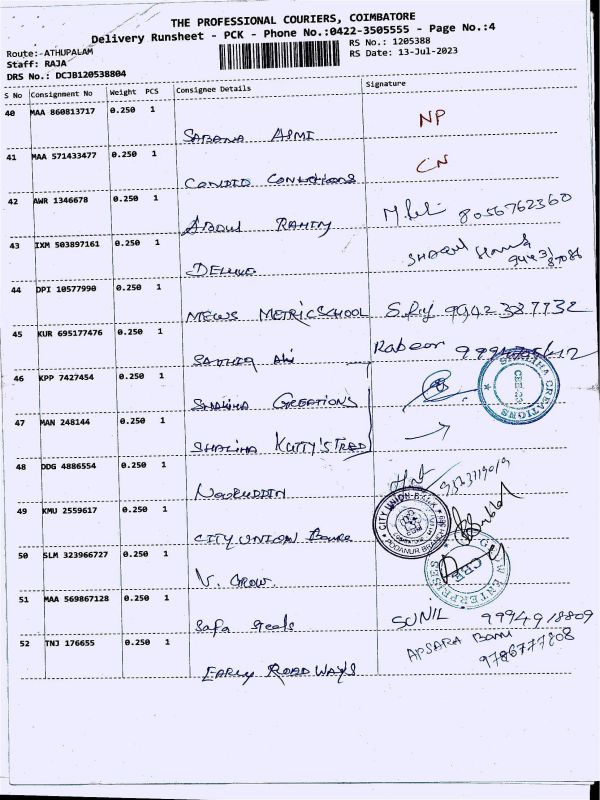 THE PROFESSIONAL COURIERS, COIMBATORE
Delivery Runsheet - PCK - Phone No.:0422-3505555 - Page No.:4
Route: ATHUPALAM
RS No.: 1205388
Staff: RAJA
RS Date: 13-Jul-2023
DRS No.: DCJB120538804
S No Consignment No Weight PCS Consignee Details Signature
40 MAA 860813717 0.250 1
SABANA NP
41 MAA 571433477 0.250 1
CN
42 AWR 1346678 0.250 1
ABDUL RAHIM 8056762360
43 IXM 503897161 0.250 1
44 DPI 10577990 0.250 1
MEWS METRIC SCHOOL 9942387732
45 KUR 695177476 0.250 1
46 KPP 7427454 0.250 1
SHALIHA CREATIONS
47 MAN 248144 0.250 1
SHALIHA KUTTY'S TRED
48 DDG 4886554 0.250 1
NOORUDDIN
49 KMU 2559617 0.250 1
CITY UNION BANK
CITY UNION BANK
PODANUR BRANCH
50 SLM 323966727 0.250 1
V. GROW
ENTERPRISES
CBE
51 MAA 569867128 0.250 1
Safa Steels SUNIL 9994918809
52 TNJ 176655 0.250 1
EARLY ROADWAYS APSARA Banu
9786777808